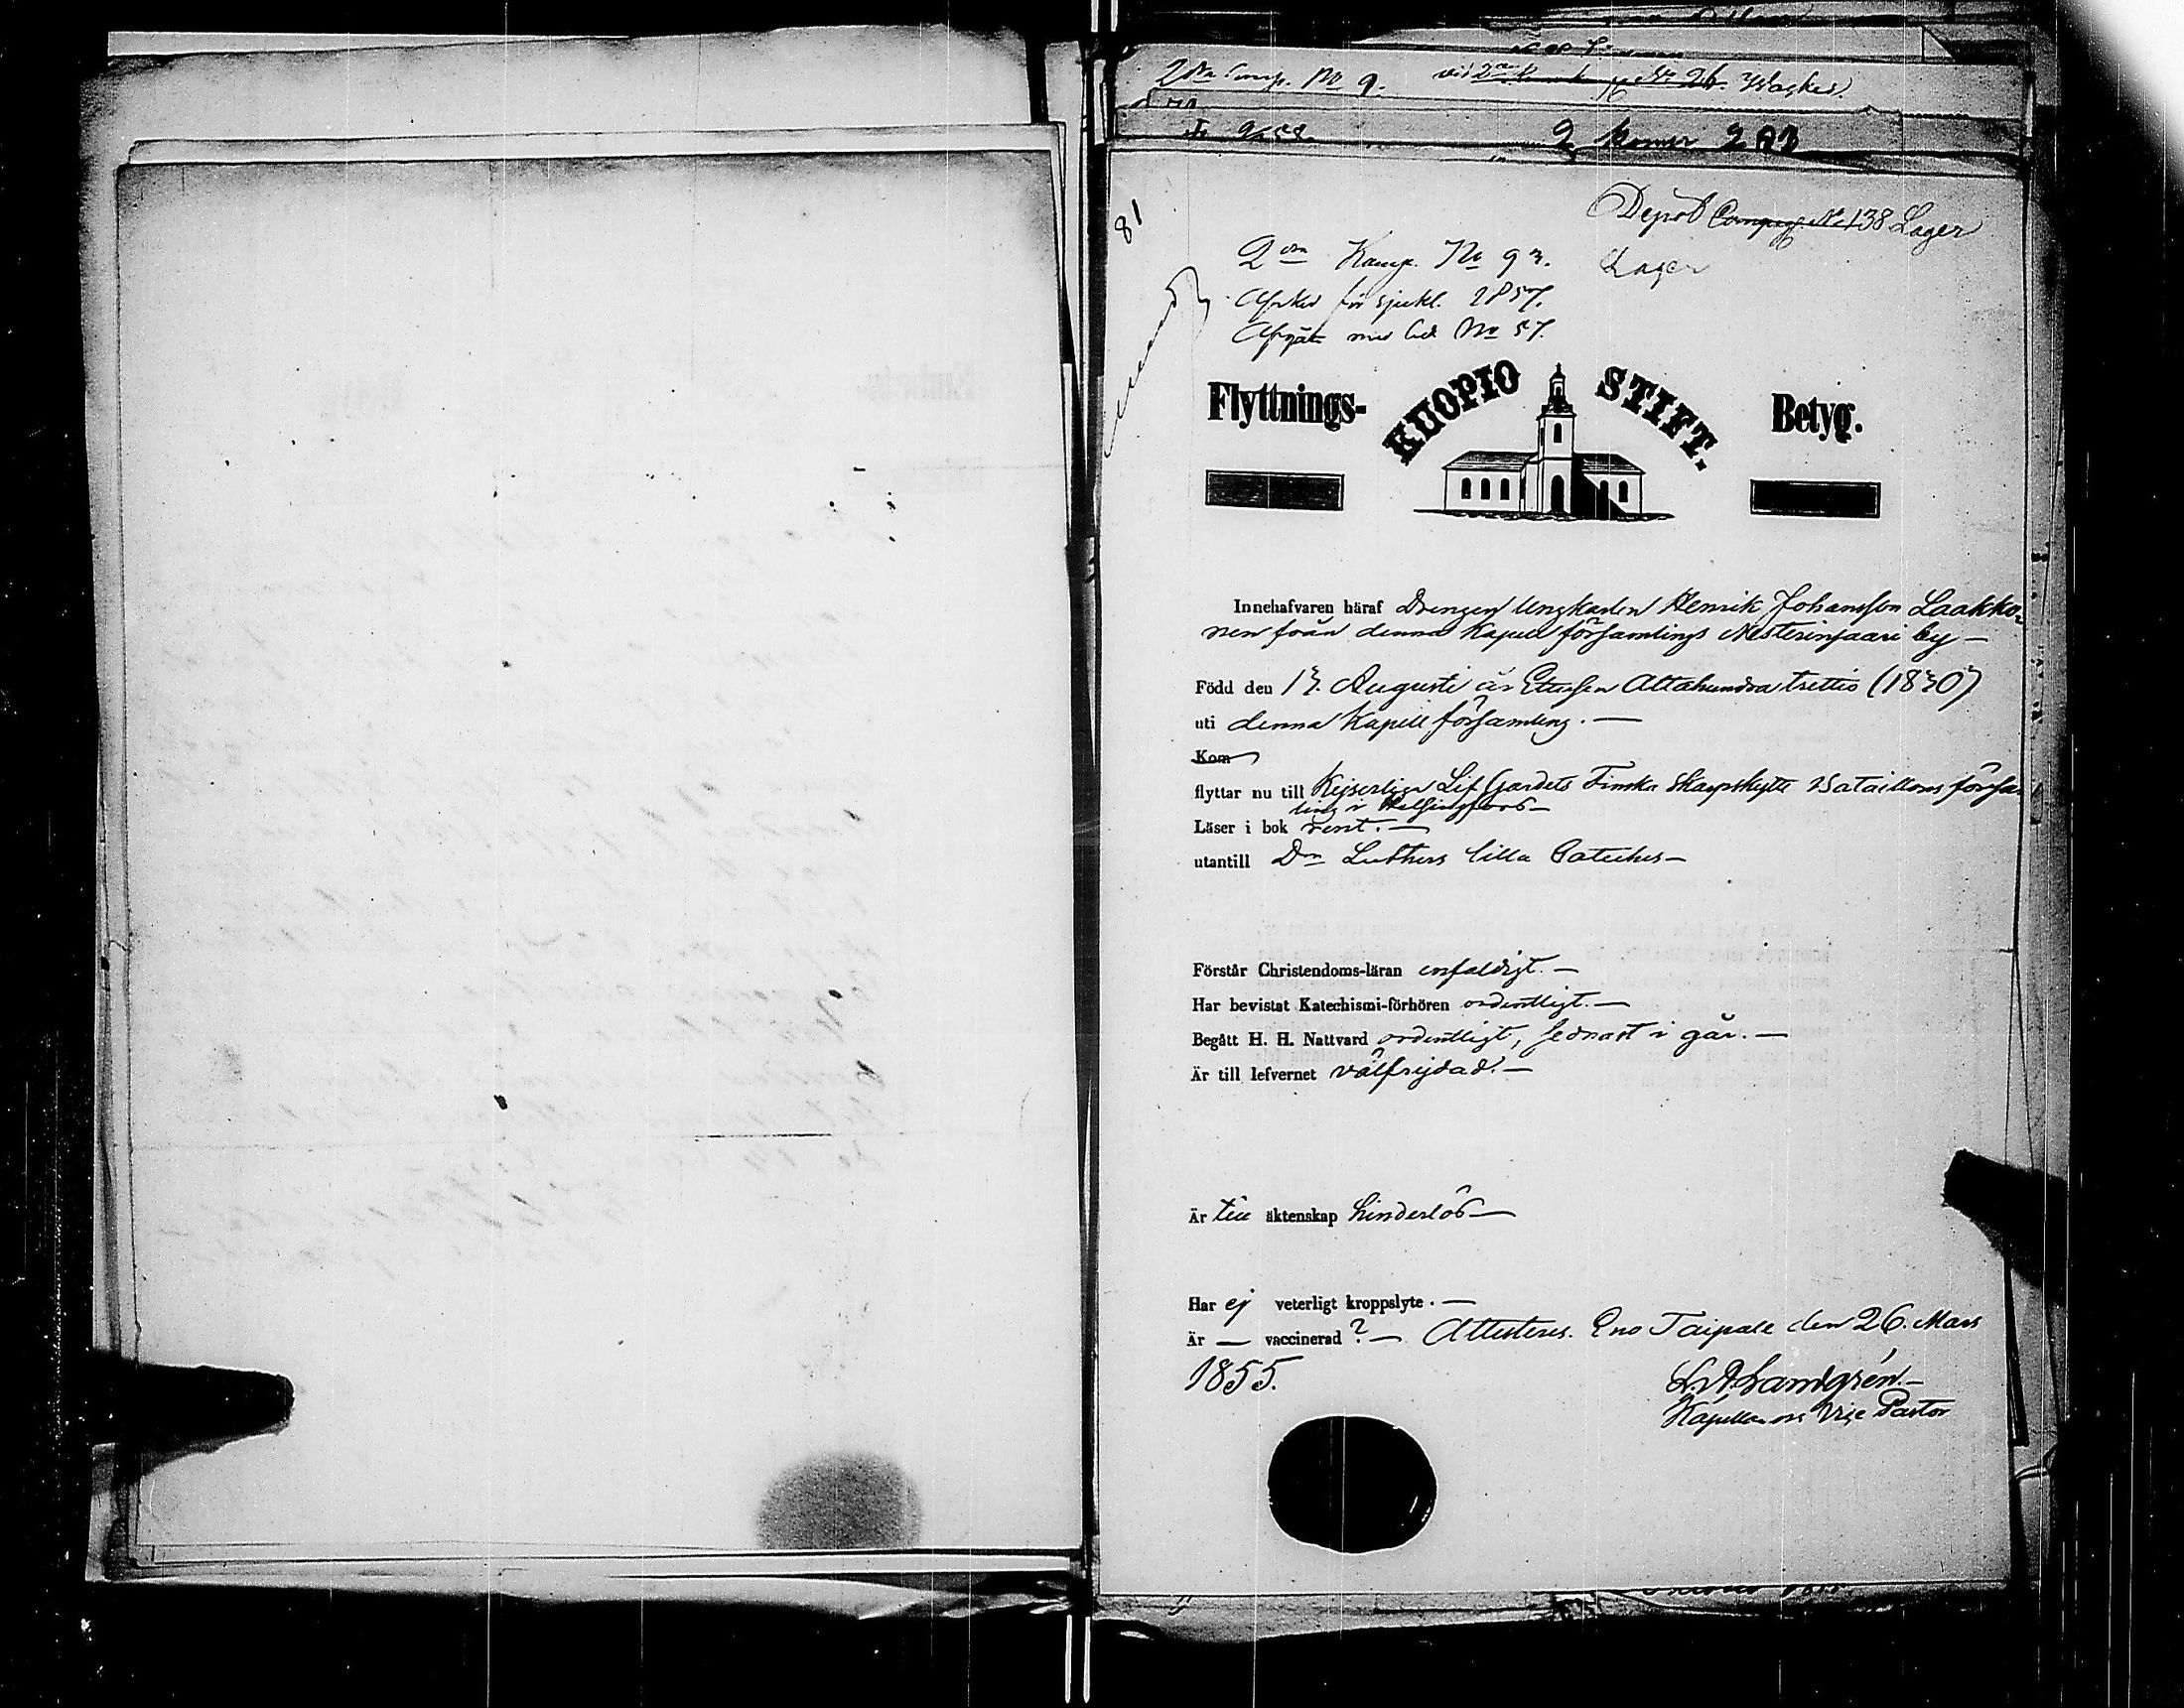 2dra Comp. No 9. Wasken
2 Komp 282
81
Depot Compag. No 138 Lager
2dra Komp. No 93. Lager
Afsked för sjukl. 1857.
Afgått med bet. No 57.
Flyttnings- KUOPIO STIFT. Betyg.
Innehafvaren häraf Drengen Ungkarlen Henrik Johansson Laakko-
nen från denna Kapell församlings Nesterinsaari by —
Född den 13. Augusti år Ettusen Åttahundra trettio (1830)
uti denna Kapell församling. —
Kom
flyttar nu till Kejserliga Lif Gardets Finska Skarpskytte Bataillons försam
ling i Helsingfors —
Läser i bok rent. —
utantill Drn Luthers lilla Cateches —
Förstår Christendoms-läran enfaldigt. —
Har bevistat Katechismi-förhören ordentligt. —
Begått H. H. Nattvard ordentligt, sednast i går. —
Är till lefvernet välfrejdad. —
Är till äktenskap hinderlös —
Har ej veterligt kroppslyte. —
Är — vaccinerad ? — Attesteras. Eno Taipale den 26. Mars
1855.
Landgrén. —
Kapellan och Vice Pastor